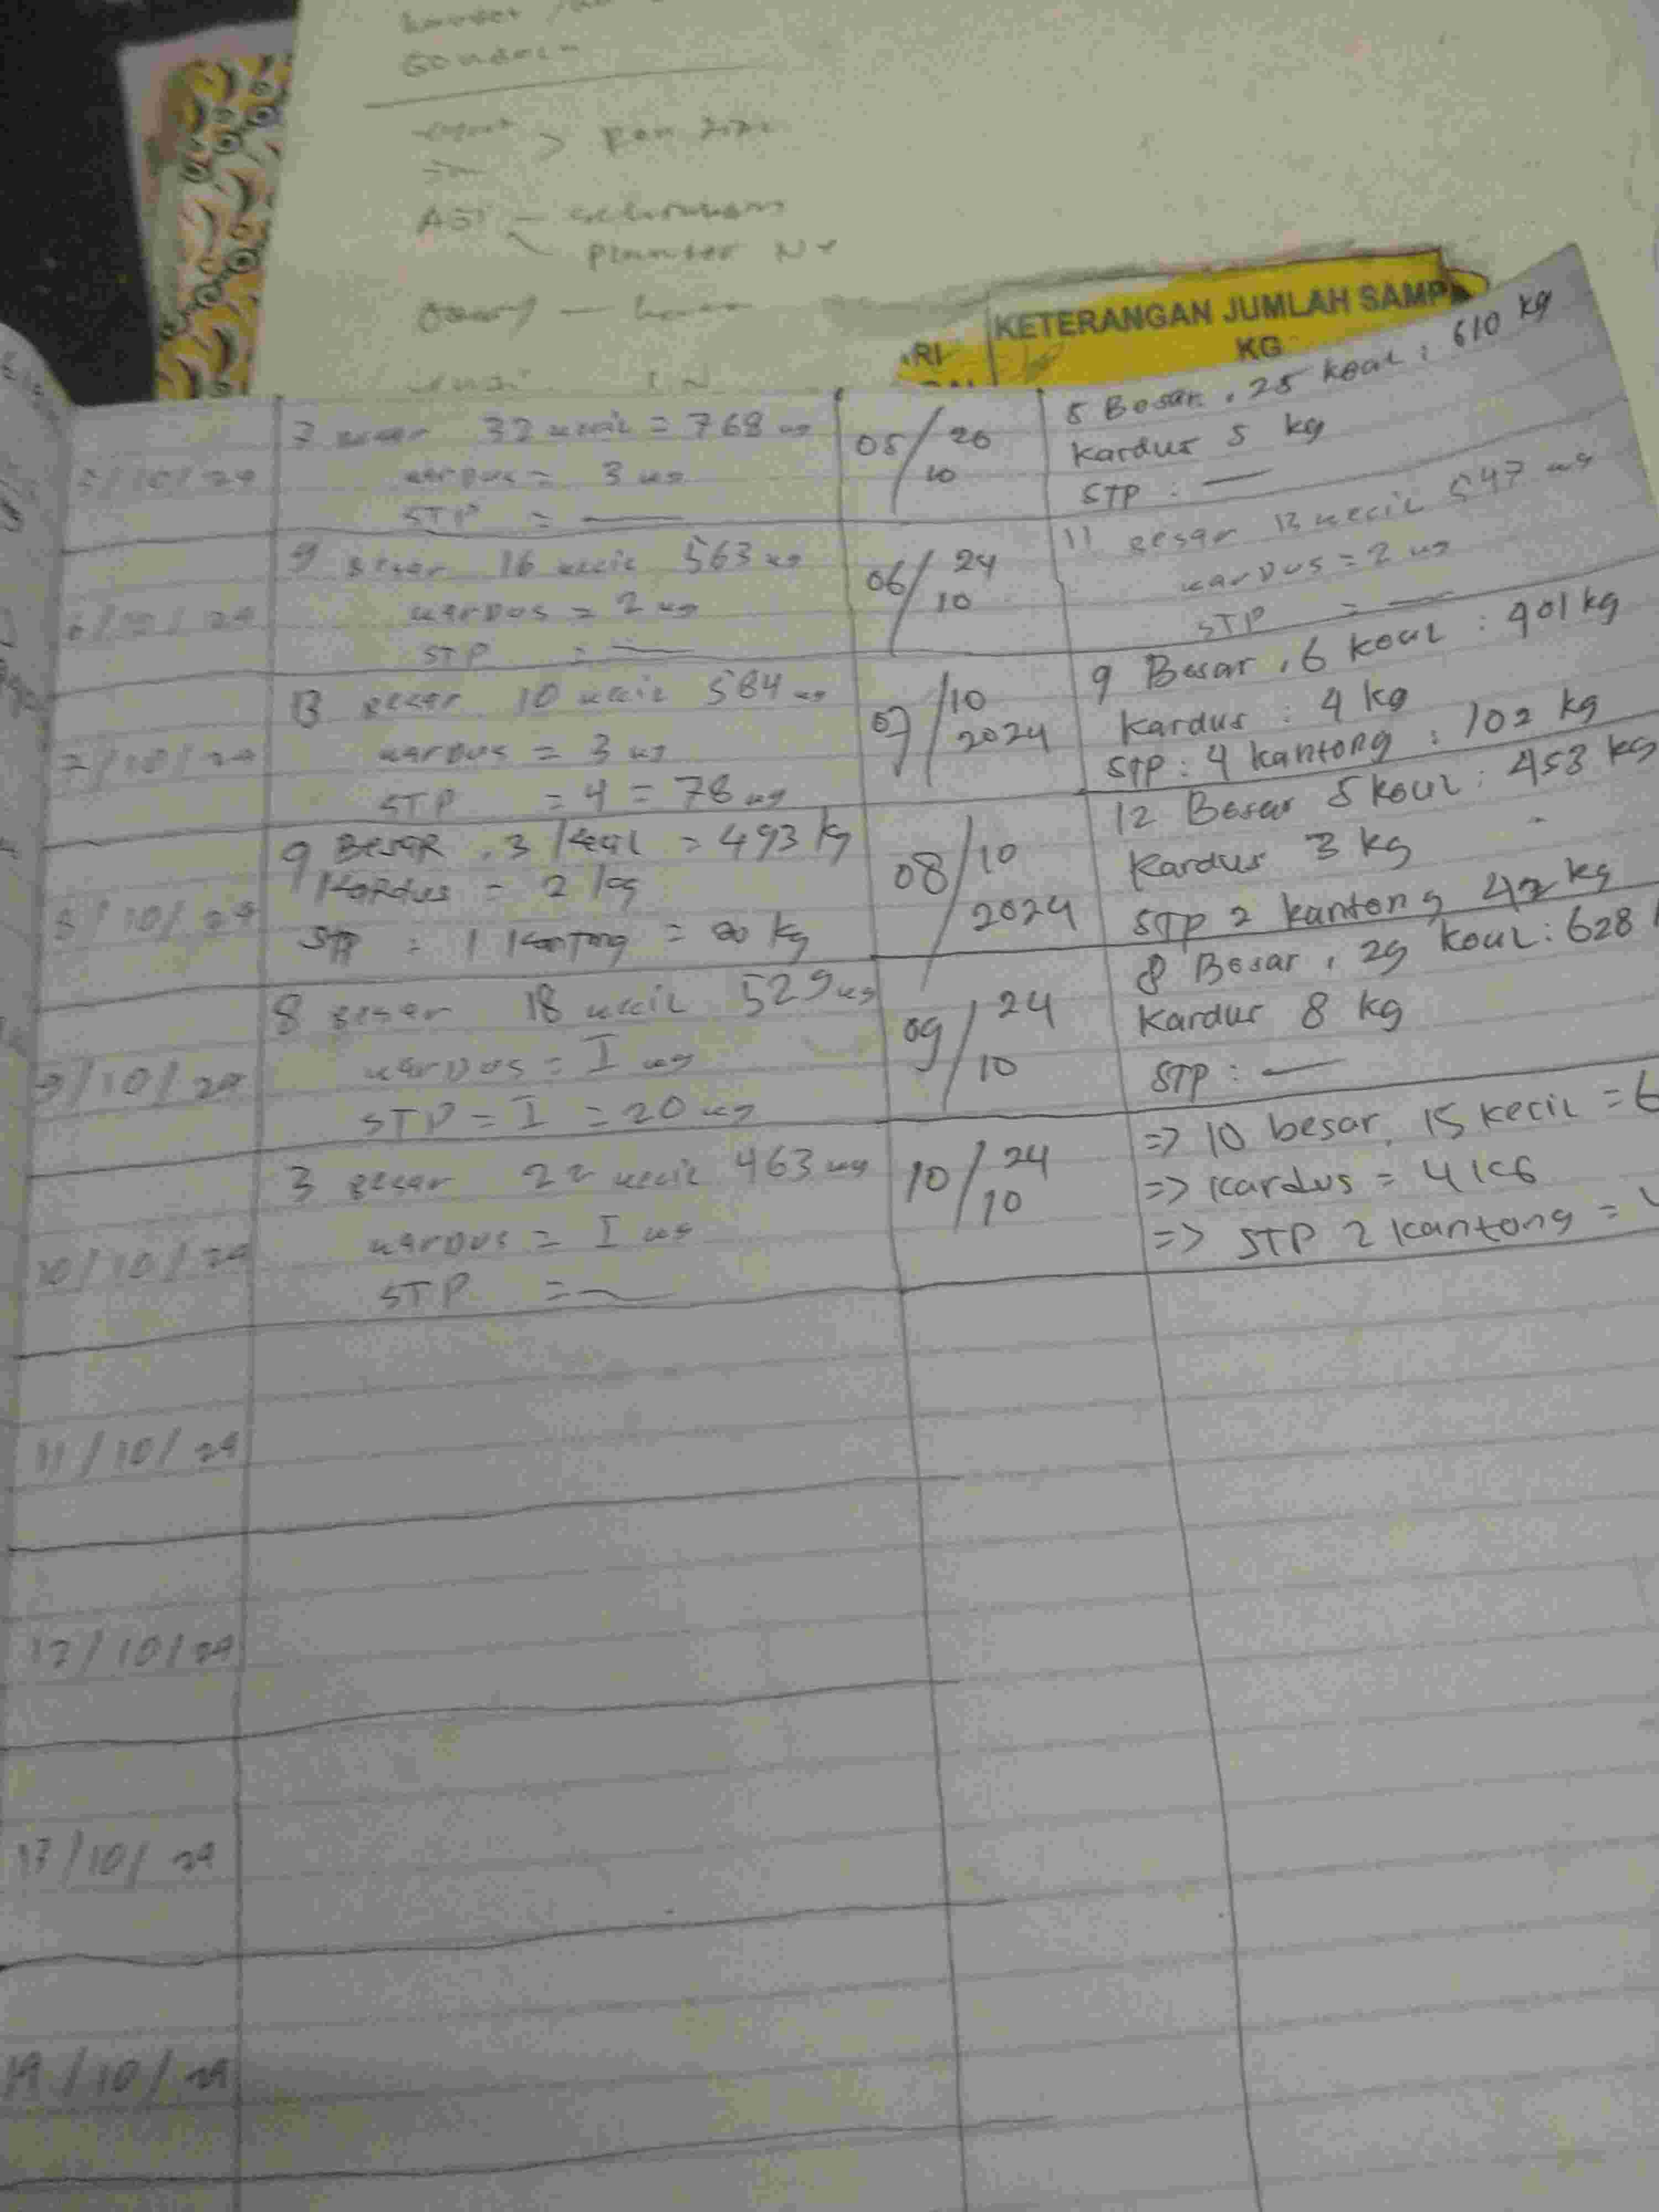 Ran
AST
Planter
KETERANGAN JUMLAH SAMP
KG
ARI
5/10/24
7 Besar 32 kecil = 768 kg
kardus = 3 kg
STP = —
05/10 20
5 Besar, 25 kecil : 610 kg
Kardus 5 kg
STP : —
6/10/24
9 Besar 16 kecil 563 kg
kardus = 2 kg
STP = —
06/10 24
11 Besar 13 kecil 547 kg
kardus = 2 kg
STP = —
7/10/24
13 Besar 10 kecil 584 kg
kardus = 3 kg
STP = 4 = 78 kg
07/10 2024
9 Besar, 6 kecil : 401 kg
Kardus : 4 kg
STP : 4 kantong : 102 kg
8/10/24
9 Besar, 3 kecil = 493 kg
Kardus = 2 kg
STP = 1 Kantong = 20 kg
08/10 2024
12 Besar 5 kecil : 453 kg
Kardus 3 kg
STP 2 kantong 42 kg
9/10/24
8 Besar 18 kecil 529 kg
kardus = I kg
STP = I = 20 kg
09/10 24
8 Besar, 29 kecil : 628
Kardus 8 kg
STP : —
10/10/24
3 Besar 22 kecil 463 kg
kardus = I kg
STP = —
10/10 24
=> 10 besar, 15 kecil = 6
=> kardus = 4 KG
=> STP 2 kantong =
11/10/24
12/10/24
13/10/24
14/10/24